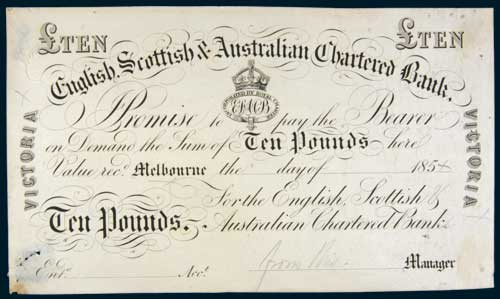 £TEN £TEN
English, Scottish & Australian Chartered Bank.
INCORPORATED BY ROYAL CHARTER
ES&ACB
I Promise to pay the Bearer
on Demand the Sum of Ten Pounds here
Value recd. Melbourne the day of 185
For the English, Scottish &
Ten Pounds. Australian Chartered Bank
Entd. Acct. Manager
VICTORIA
VICTORIA